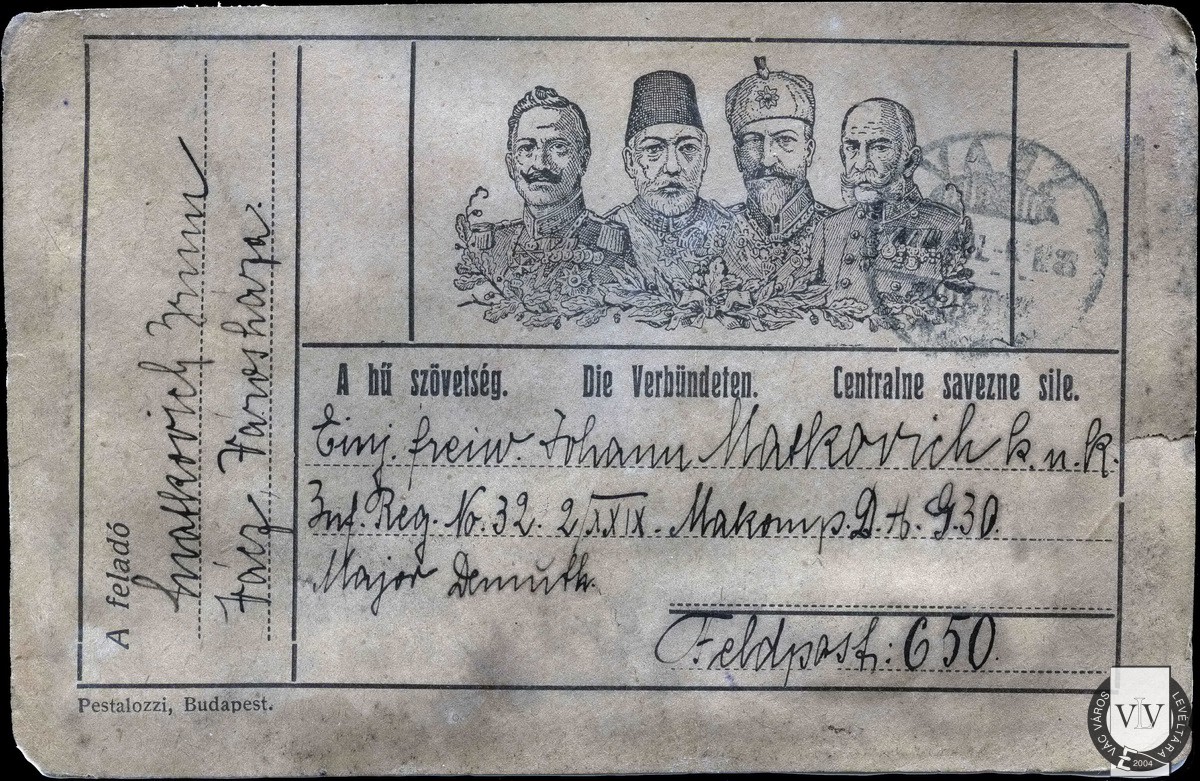 A hű szövetség. Die Verbündeten. Centralne savezne sile.
Einj. freiw. Johann Matkovich k. u. k.
Inf. Reg. No. 32. 2/XXIX. Makomp. D. A. G. 30.
Major Demuth.
Feldpost: 650.
A feladó
Matkovich Irma
Vácz, Városháza.
Pestalozzi, Budapest.
VÁC VÁROS LEVÉLTÁRA
VLV
2004